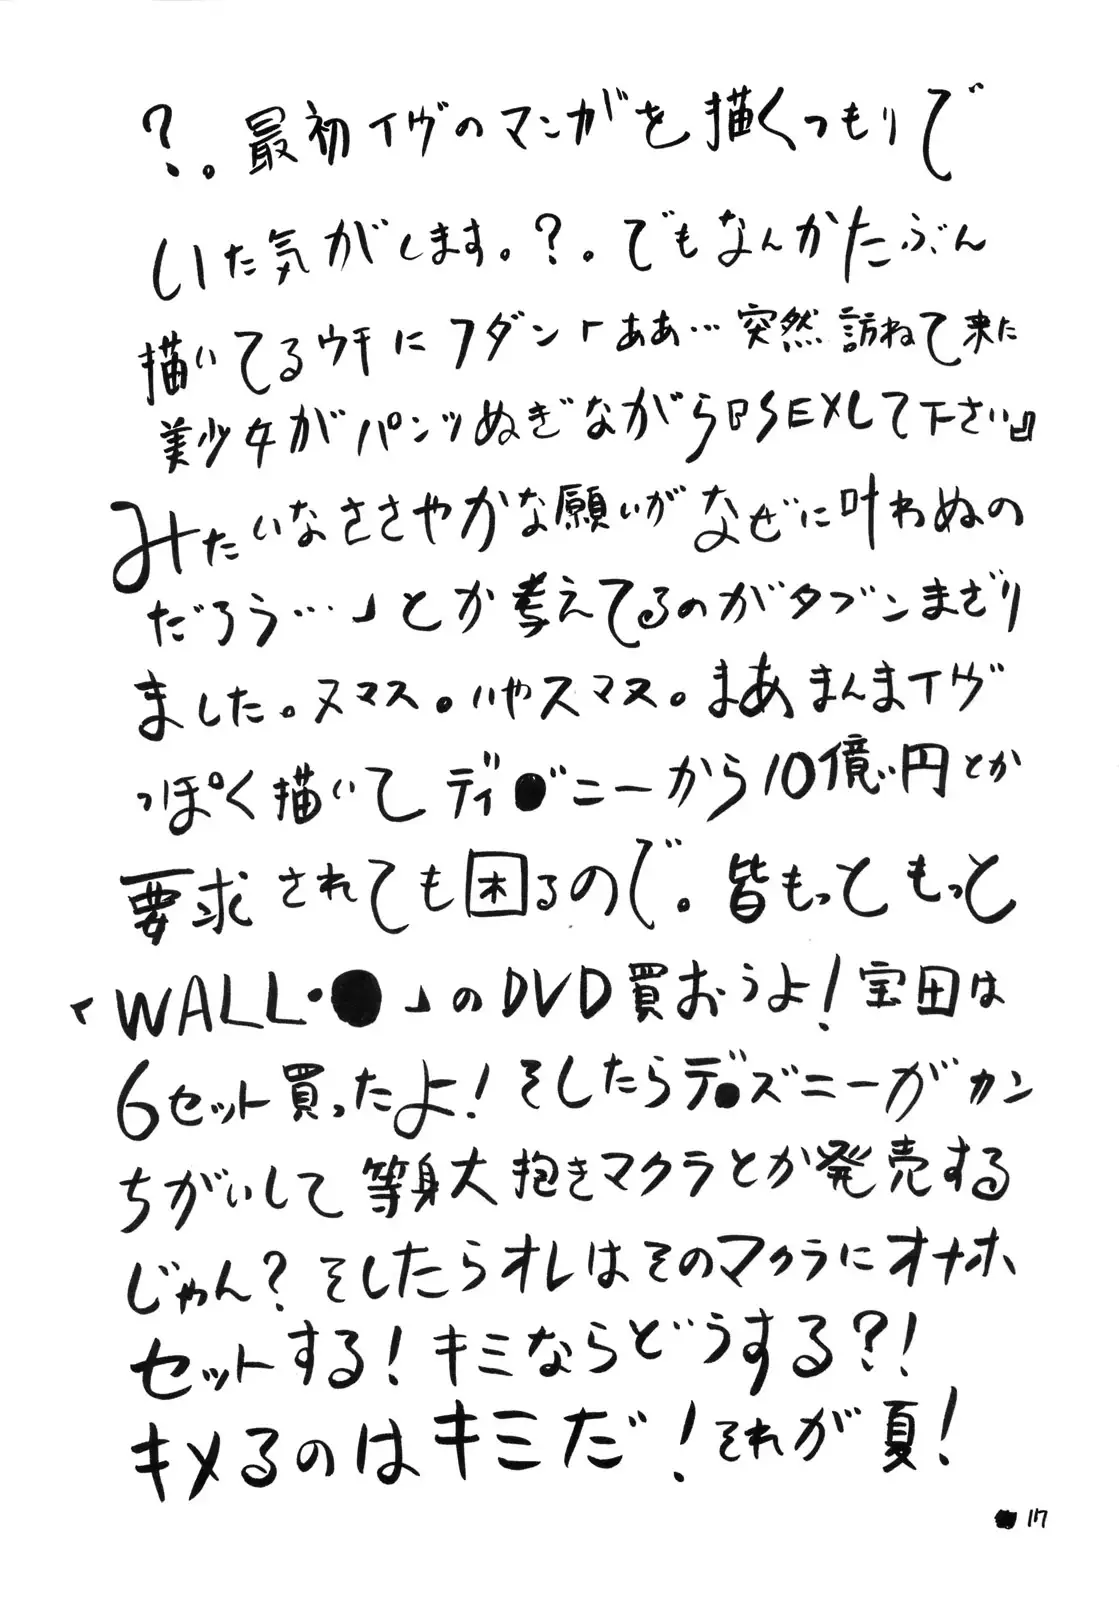 ？。最初イヴのマンガを描くつもりで
いた気がします。？。でもなんかたぶん
描いてるウチにフダン「ああ…突然訪ねて来た
美少女がパンツぬぎながら『SEXして下さい』
みたいなささやかな願いがなぜに叶わぬの
だろう…」とか考えてるのがタブンまざり
ました。ヌマス。いやスマヌ。まあまんまイヴ
っぽく描いてディ●ニーから10億円とか
要求されても困るので。皆もっともっと
「WALL・●」のDVD買おうよ！宝田は
6セット買ったよ！そしたらデ●ズニーがカン
ちがいして等身大抱きマクラとか発売する
じゃん？そしたらオレはそのマクラにオナホ
セットする！キミならどうする？！
キメるのはキミだ！それが夏！
17